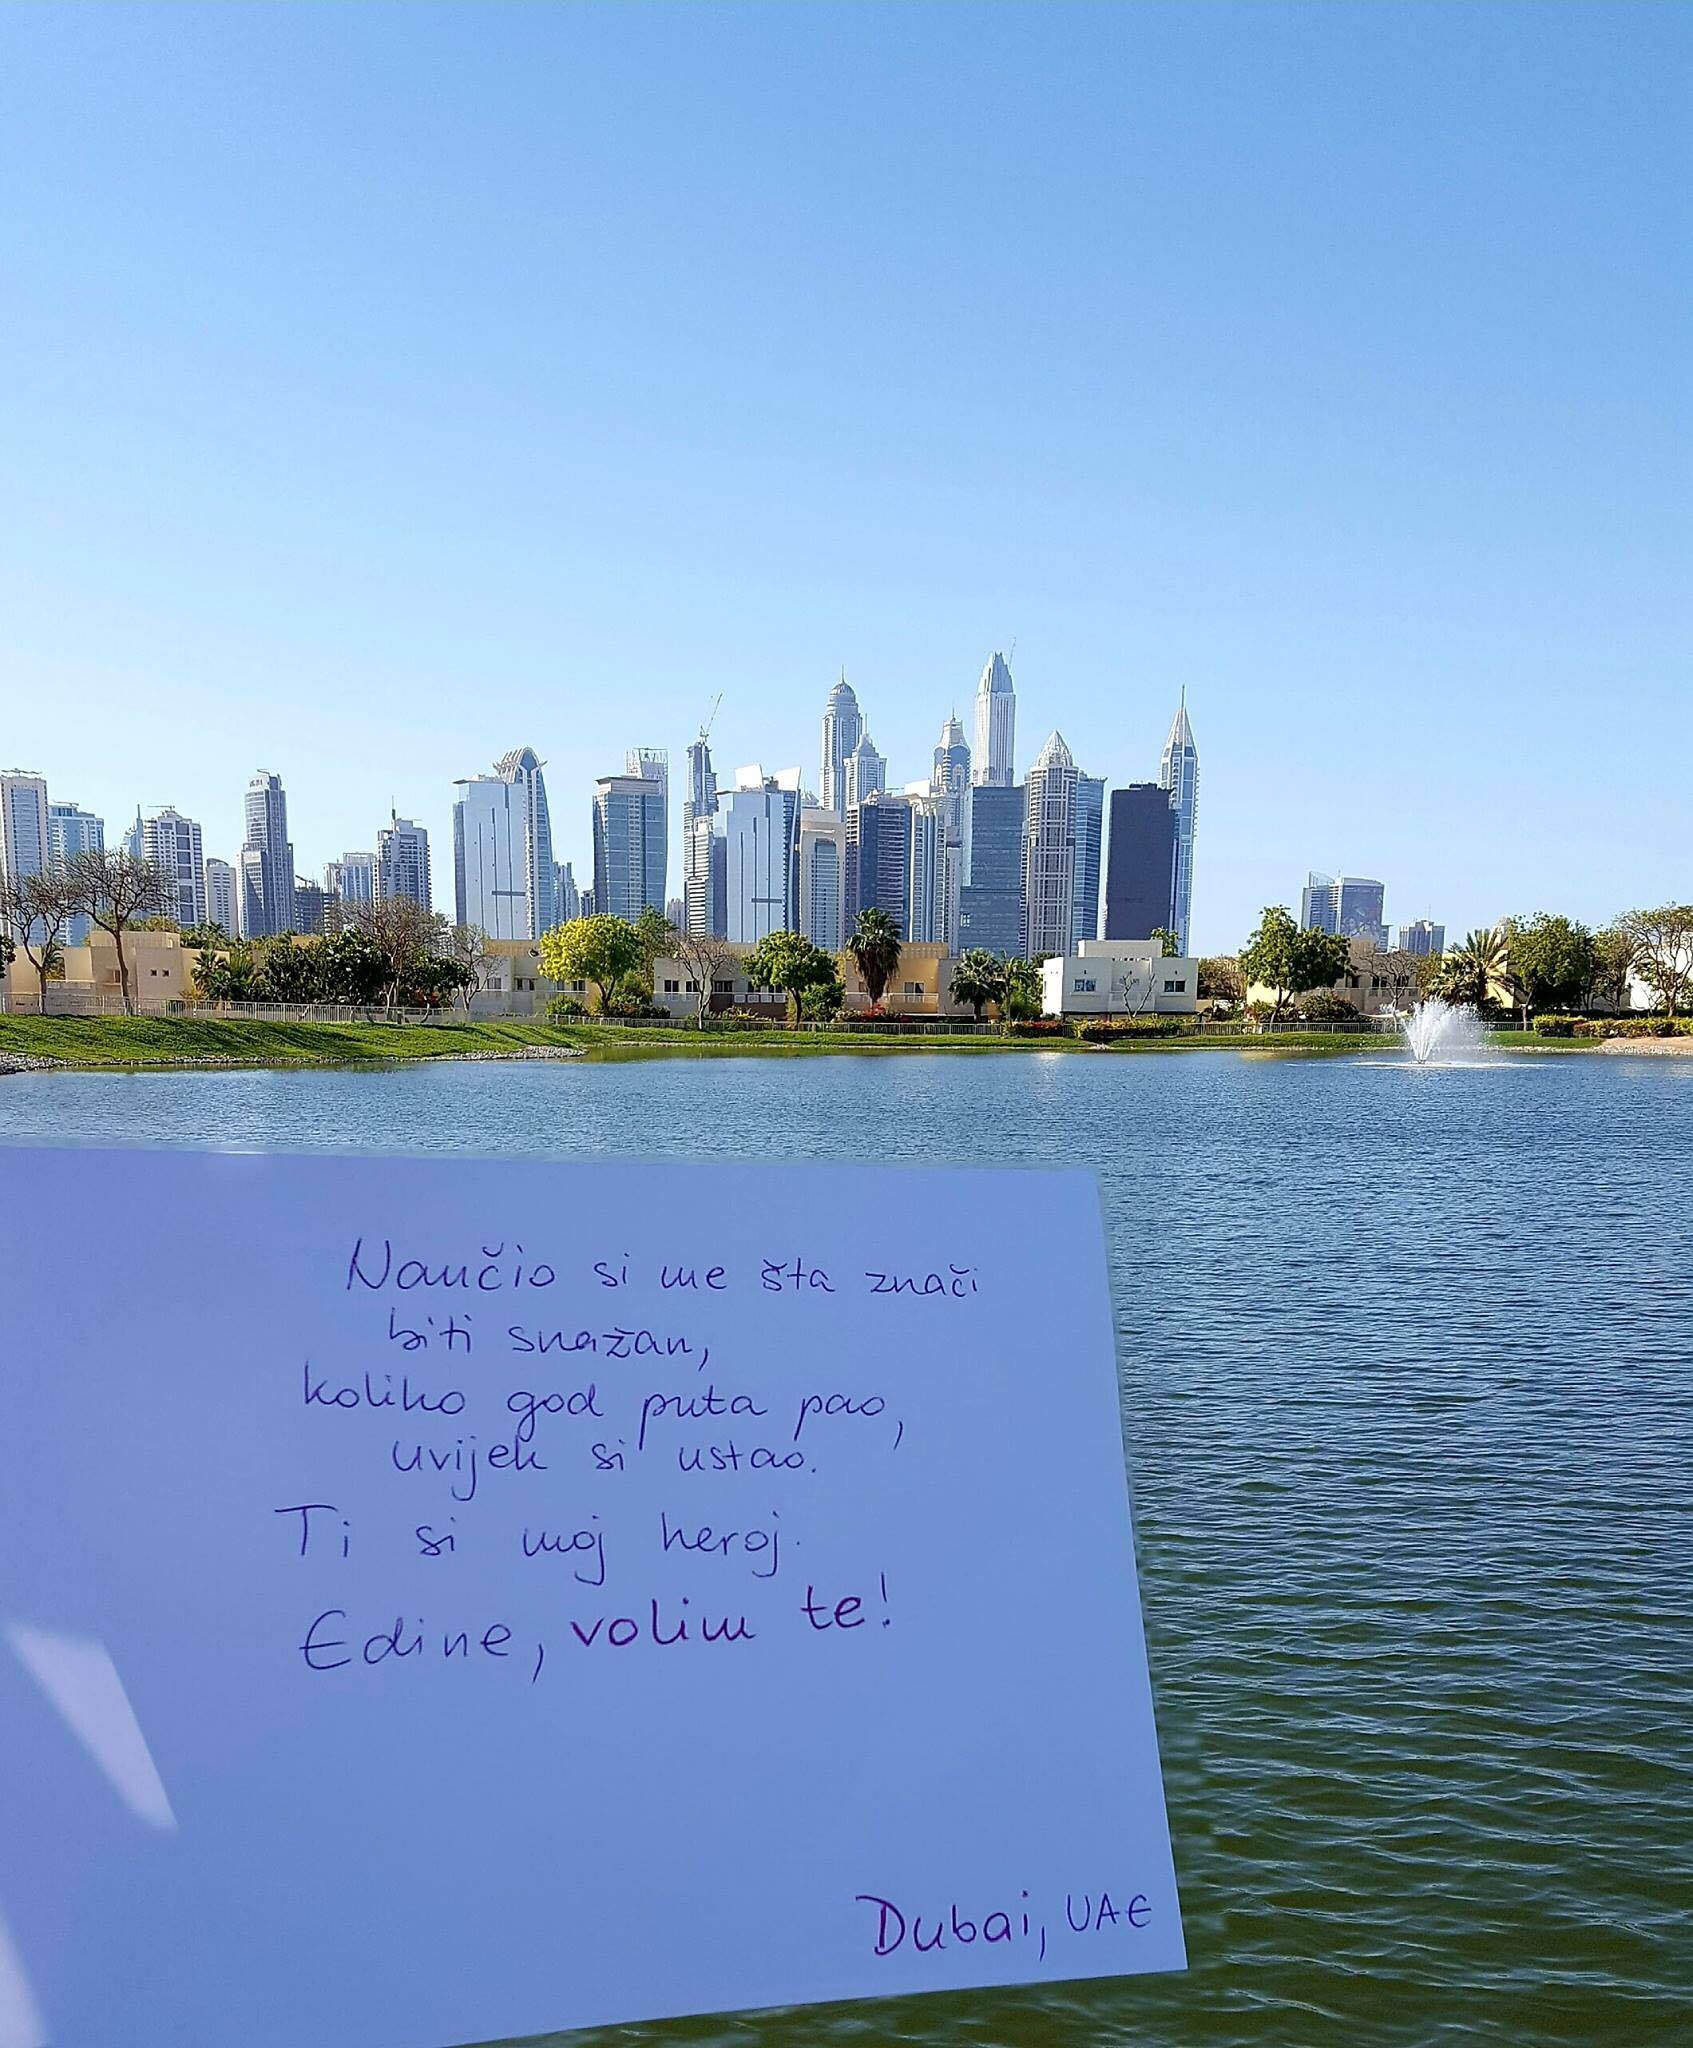 Naučio si me šta znači
biti snažan,
koliko god puta pao,
uvijek si ustao.
Ti si moj heroj.
Edine, volim te!
Dubai, UAE